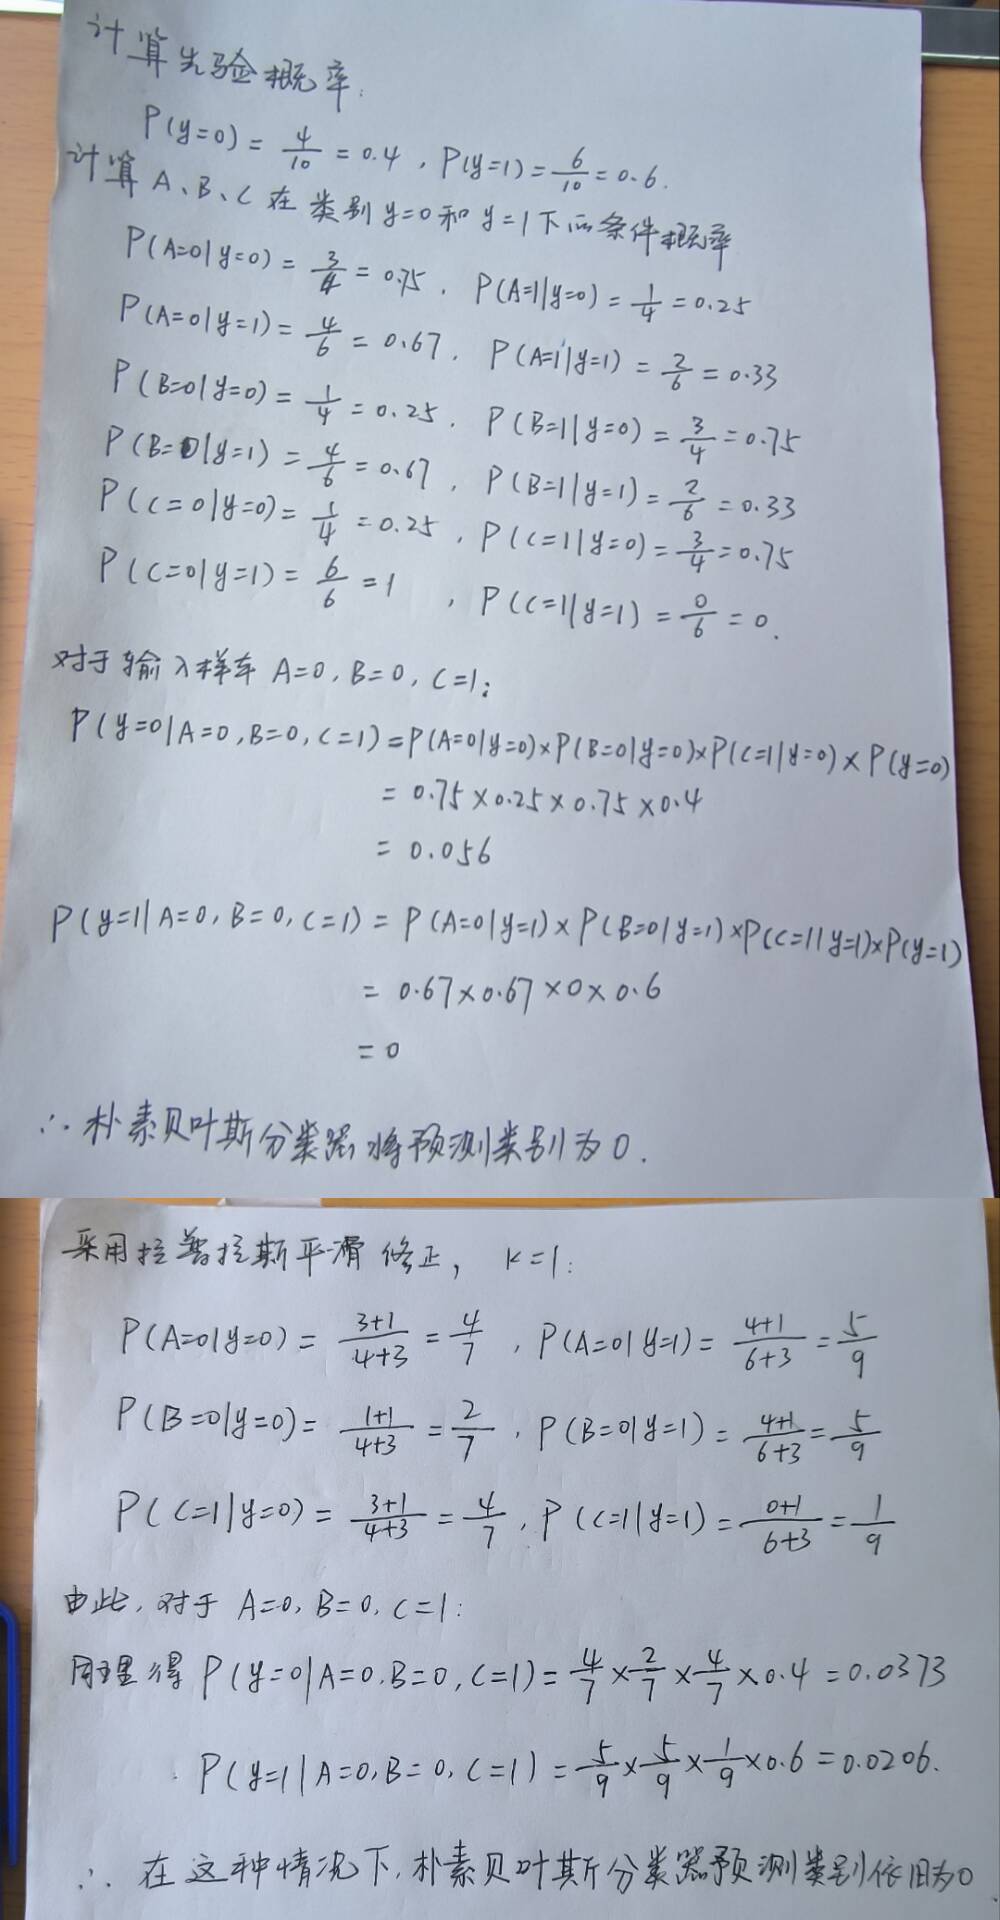 计算先验概率:
P(y=0) = 4/10 = 0.4 , P(y=1) = 6/10 = 0.6.
计算 A、B、C 在类别 y=0 和 y=1 下的条件概率
P(A=0|y=0) = 3/4 = 0.75 , P(A=1|y=0) = 1/4 = 0.25
P(A=0|y=1) = 4/6 = 0.67 , P(A=1|y=1) = 2/6 = 0.33
P(B=0|y=0) = 1/4 = 0.25 , P(B=1|y=0) = 3/4 = 0.75
P(B=0|y=1) = 4/6 = 0.67 , P(B=1|y=1) = 2/6 = 0.33
P(C=0|y=0) = 1/4 = 0.25 , P(C=1|y=0) = 3/4 = 0.75
P(C=0|y=1) = 6/6 = 1 , P(C=1|y=1) = 0/6 = 0.
对于输入样本 A=0, B=0, C=1:
P(y=0|A=0,B=0,C=1) = P(A=0|y=0)×P(B=0|y=0)×P(C=1|y=0)×P(y=0)
= 0.75×0.25×0.75×0.4
= 0.056
P(y=1|A=0,B=0,C=1) = P(A=0|y=1)×P(B=0|y=1)×P(C=1|y=1)×P(y=1)
= 0.67×0.67×0×0.6
= 0
∴ 朴素贝叶斯分类器将预测类别为0.
采用拉普拉斯平滑修正, K=1:
P(A=0|y=0) = 3+1/4+3 = 4/7 , P(A=0|y=1) = 4+1/6+3 = 5/9
P(B=0|y=0) = 1+1/4+3 = 2/7 , P(B=0|y=1) = 4+1/6+3 = 5/9
P(C=1|y=0) = 3+1/4+3 = 4/7 , P(C=1|y=1) = 0+1/6+3 = 1/9
由此, 对于 A=0, B=0, C=1:
同理得 P(y=0|A=0,B=0,C=1) = 4/7×2/7×4/7×0.4 = 0.0373
P(y=1|A=0,B=0,C=1) = 5/9×5/9×1/9×0.6 = 0.0206.
∴ 在这种情况下, 朴素贝叶斯分类器预测类别依旧为0